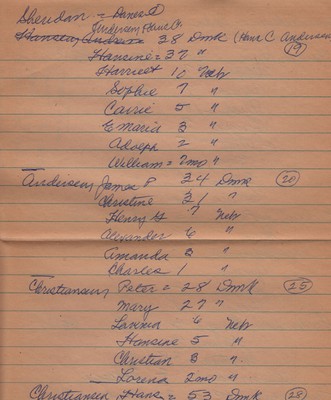 Sheridan = Danes
Andersen, Hans C.
Hansen, Andrew 38 Dmk (Hans C Andersen
19
Hansine = 37 "
Harriet 10 Nebr
Sophie 7 "
Carrie 5 "
Emaria 3 "
Adolph 2 "
William = 7mo "
Andersen, James P 34 Dmk 20
Christine 31 "
Henry 7 Nebr
Alexander 6 "
Amanda 3 "
Charles 1 "
Christiansen, Peter = 28 Dmk 25
Mary 27 "
6 Nebr
Hansine 5 "
Christian 3 "
Lorena 2mo "
Christiansen Hans = 53 Dmk 28